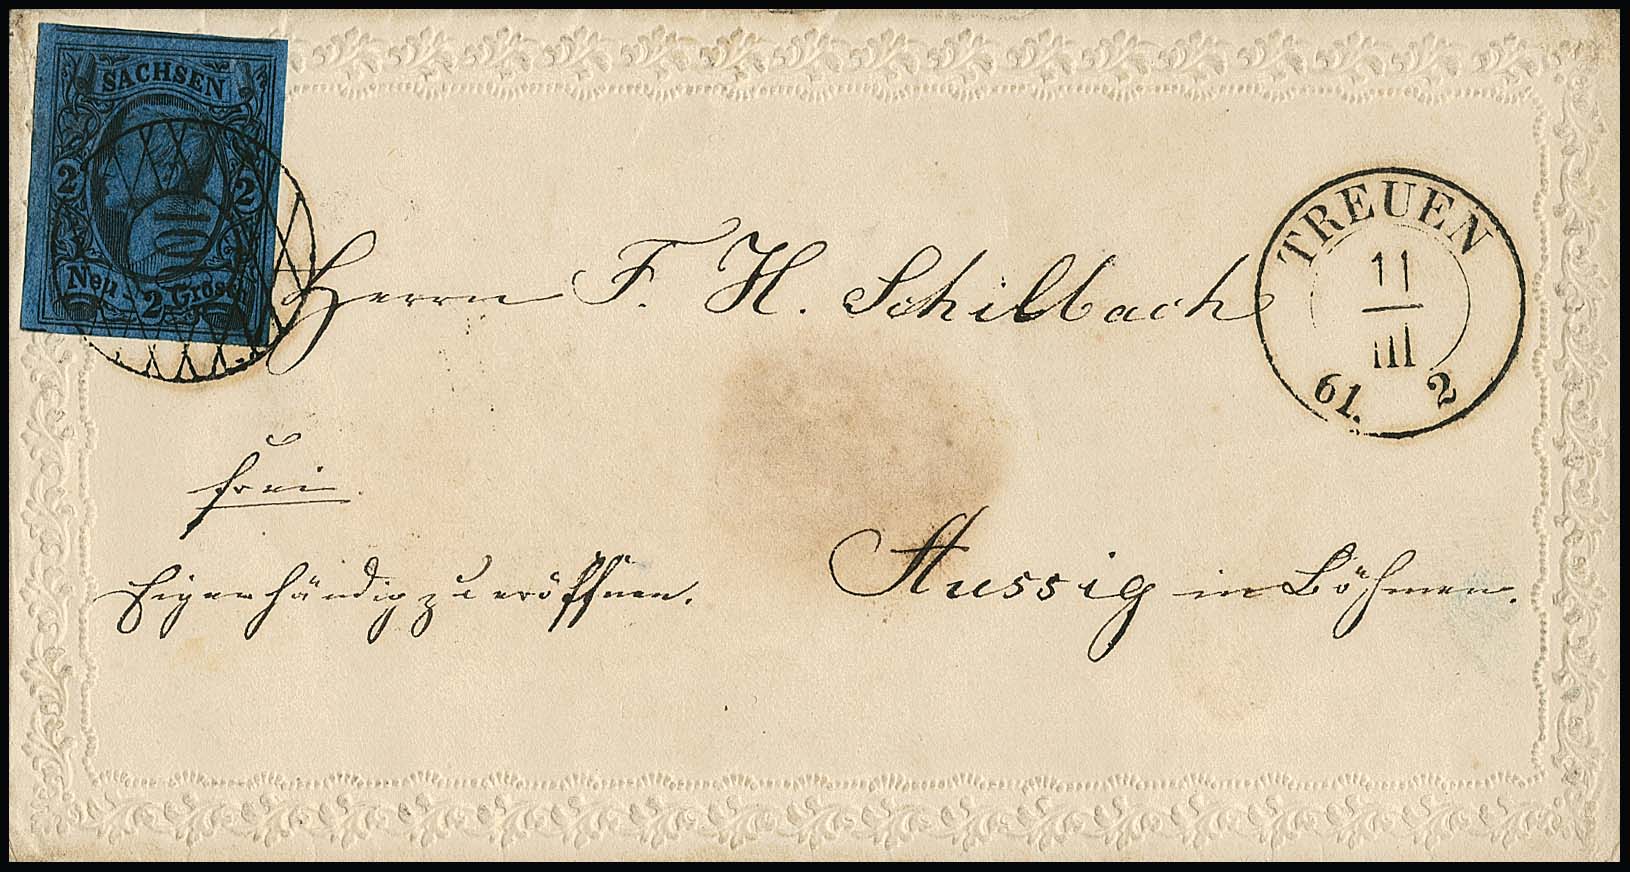 SACHSEN
2 2
Neu - 2 Grosch
Herrn F. H. Schilbach
TREUEN
11
III
61. 2
frei
Eigenhändig zu eröffnen.
Aussig in Böhmen.